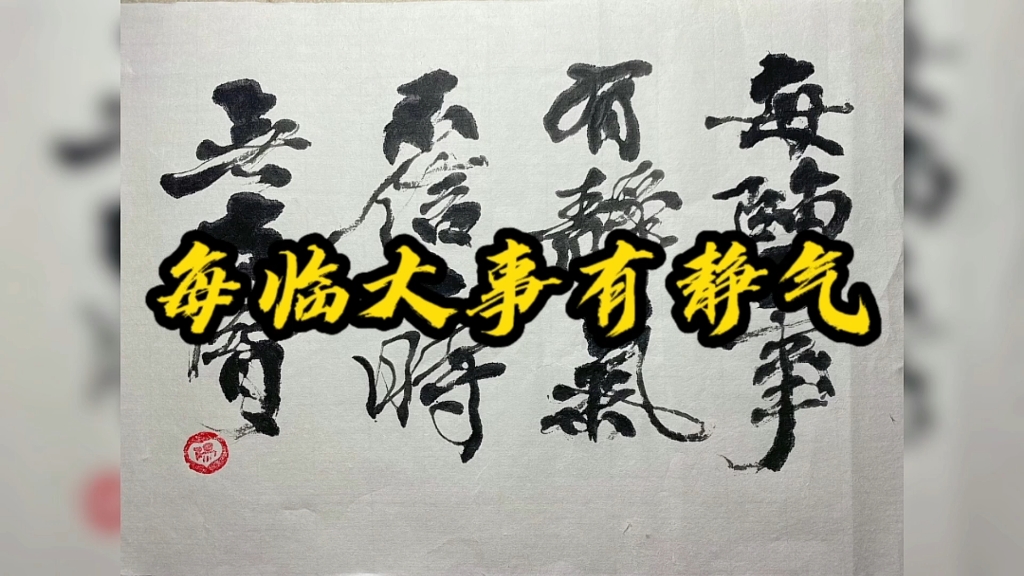 每临大事有静气
每臨事
有靜氣
不信時
無賢